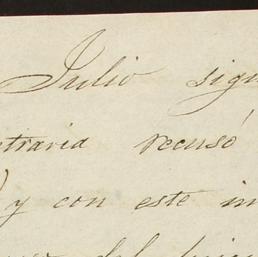 Julio sigu
traria recusó
y con este in
del